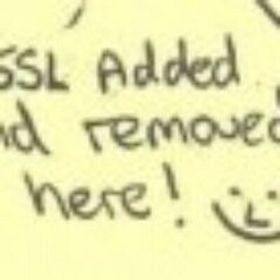 SSL Added
nd removed
here!